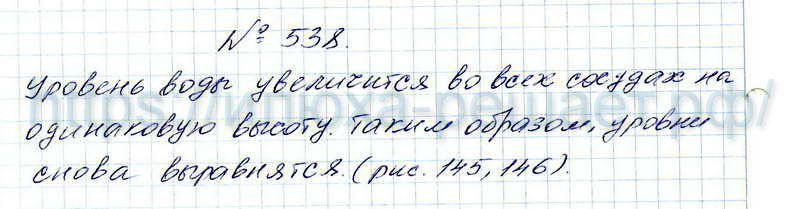 № 538.
Уровень воды увеличится во всех сосудах на
одинаковую высоту. Таким образом, уровни
снова выравнятся. (рис. 145, 146).